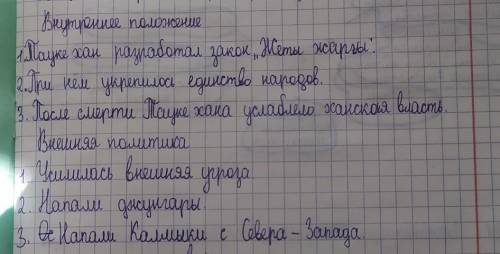 Внутреннее положение
1. Тауке хан разработал закон „Жеты жаргы".
2. При нем укрепилось единство народов.
3. После смерти Тауке хана услаблело ханская власть.
Внешняя политика
1 Усилилась внешняя угроза
2. Напали джунгары.
3. Напали Калмыки с Севера - Запада